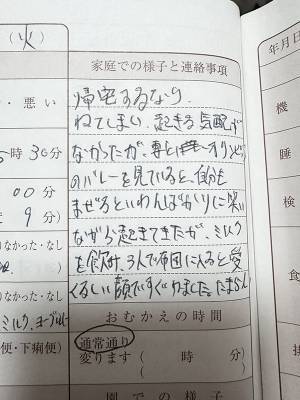 (火)
年月日
家庭での様子と連絡事項
・悪い
帰宅するなり、
機
ねてしまい、起きる気配が
時30分
なかったが、妻と
オリンピック
睡
のバレーを見ていると、自分も
00分
まぜろといわんばかりに笑い
検
9分)
ながら起きてきたが、ミルク
なかった・なし
を飲み、3人で布団に入ると愛
くるしい顔ですぐねました。たまらん
食
ミルク、ヨーグルト
おむかえの時間
便・下痢便)
通常通り
変ります( 時 分)
排
園での様子